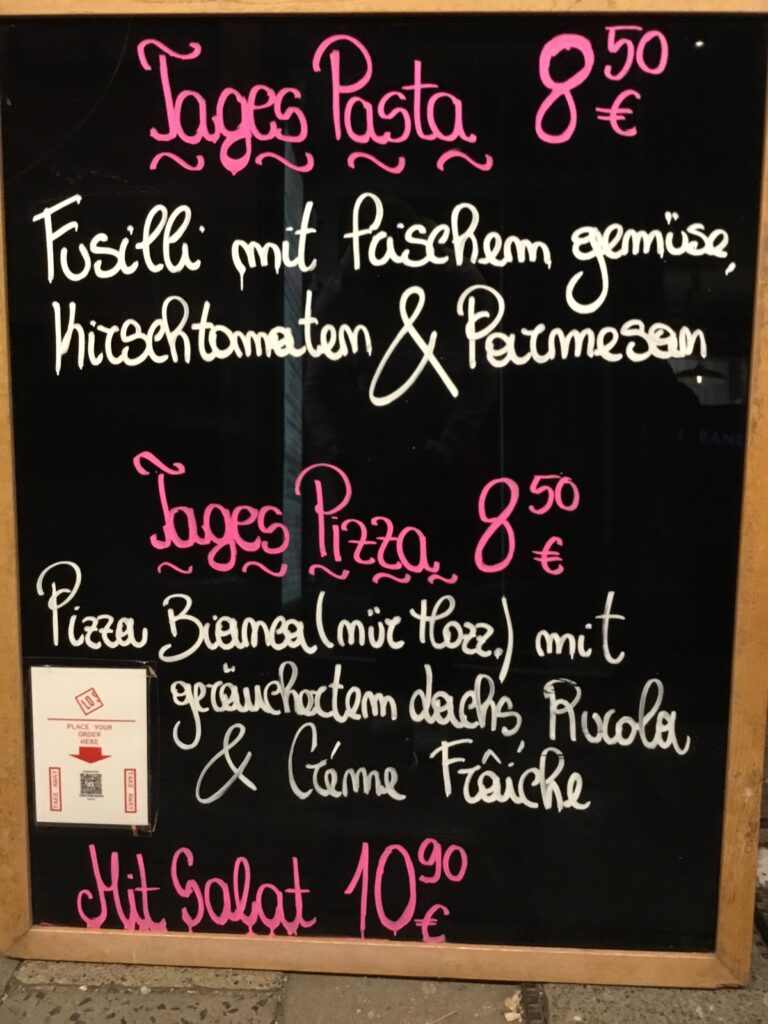 Tages Pasta 8 50 €
Fusilli mit faischem gemüse,
Kirschtomaten & Parmesan
Tages Pizza 8 50 €
Pizza Bianca (nür Mozz.) mit
geräuchertem dachs, Rucola
& Créme Fraîche
PLACE YOUR
ORDER
HERE
TAKE AWAY
TAKE AWAY
Mit Salat 10 90 €